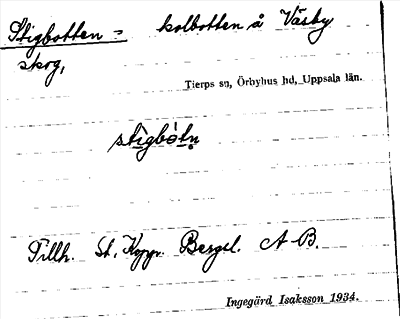 Stigbotten = kolbotten å Väsby
skog,
Tierps sn, Örbyhus hd, Uppsala län.
stìgbòtn̥
Tillh. St. Kopp. Bergsl. A-B.
Ingegärd Isaksson 1934.